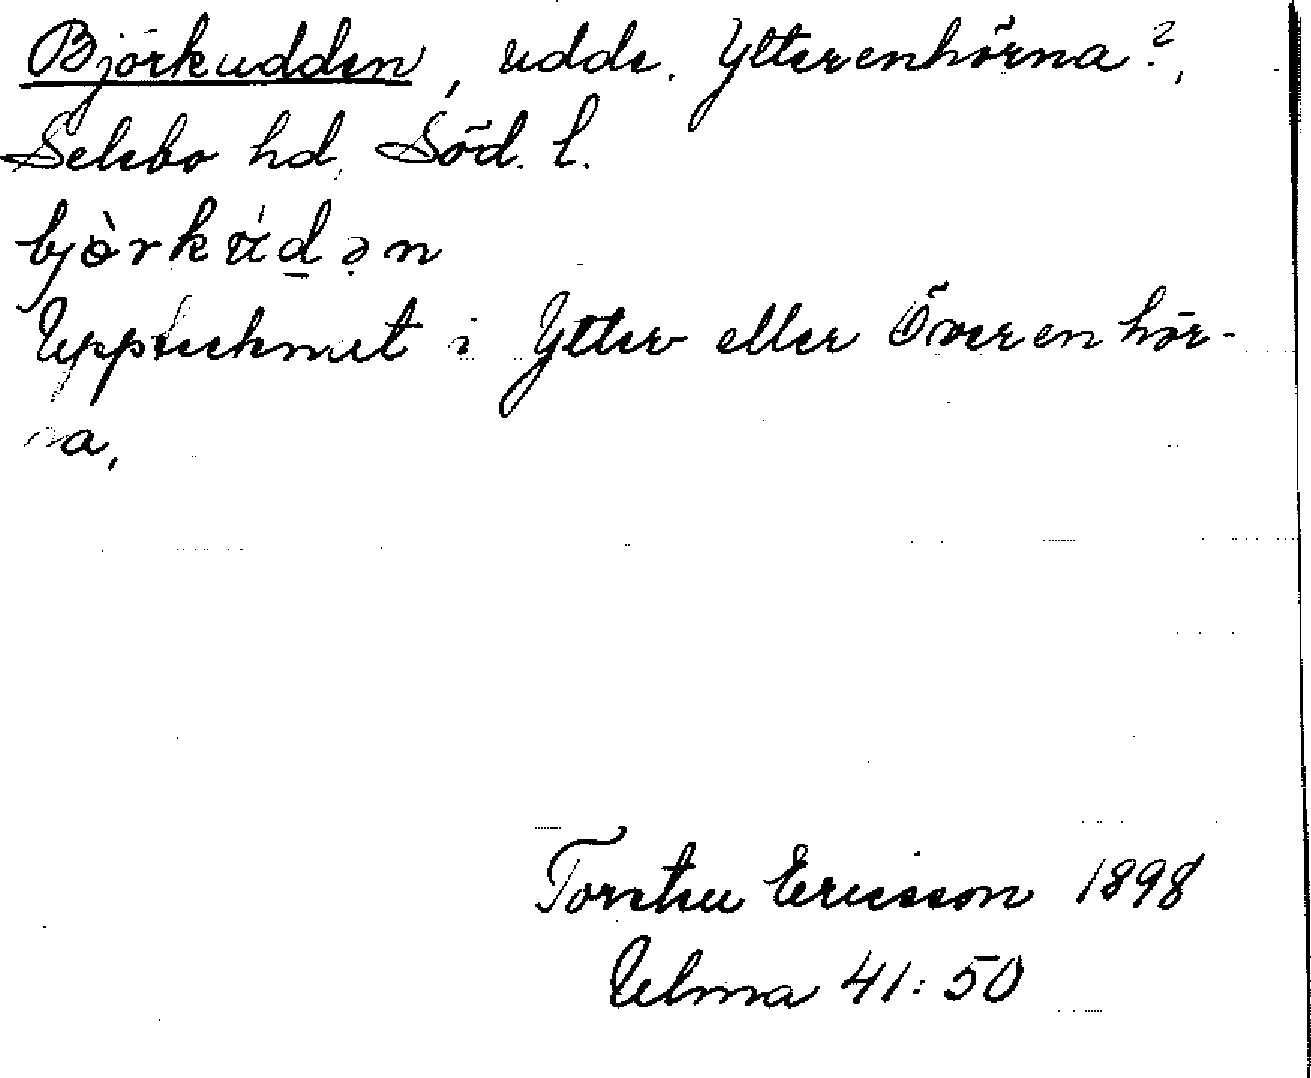 Björkudden, udde. Ytterenhörna?,
Selebo hd, Söd. l.
bjòrkúdən
Upptecknat i Ytter eller Överenhör-
na,
Torsten Ericsson 1898
Ulma 41:50